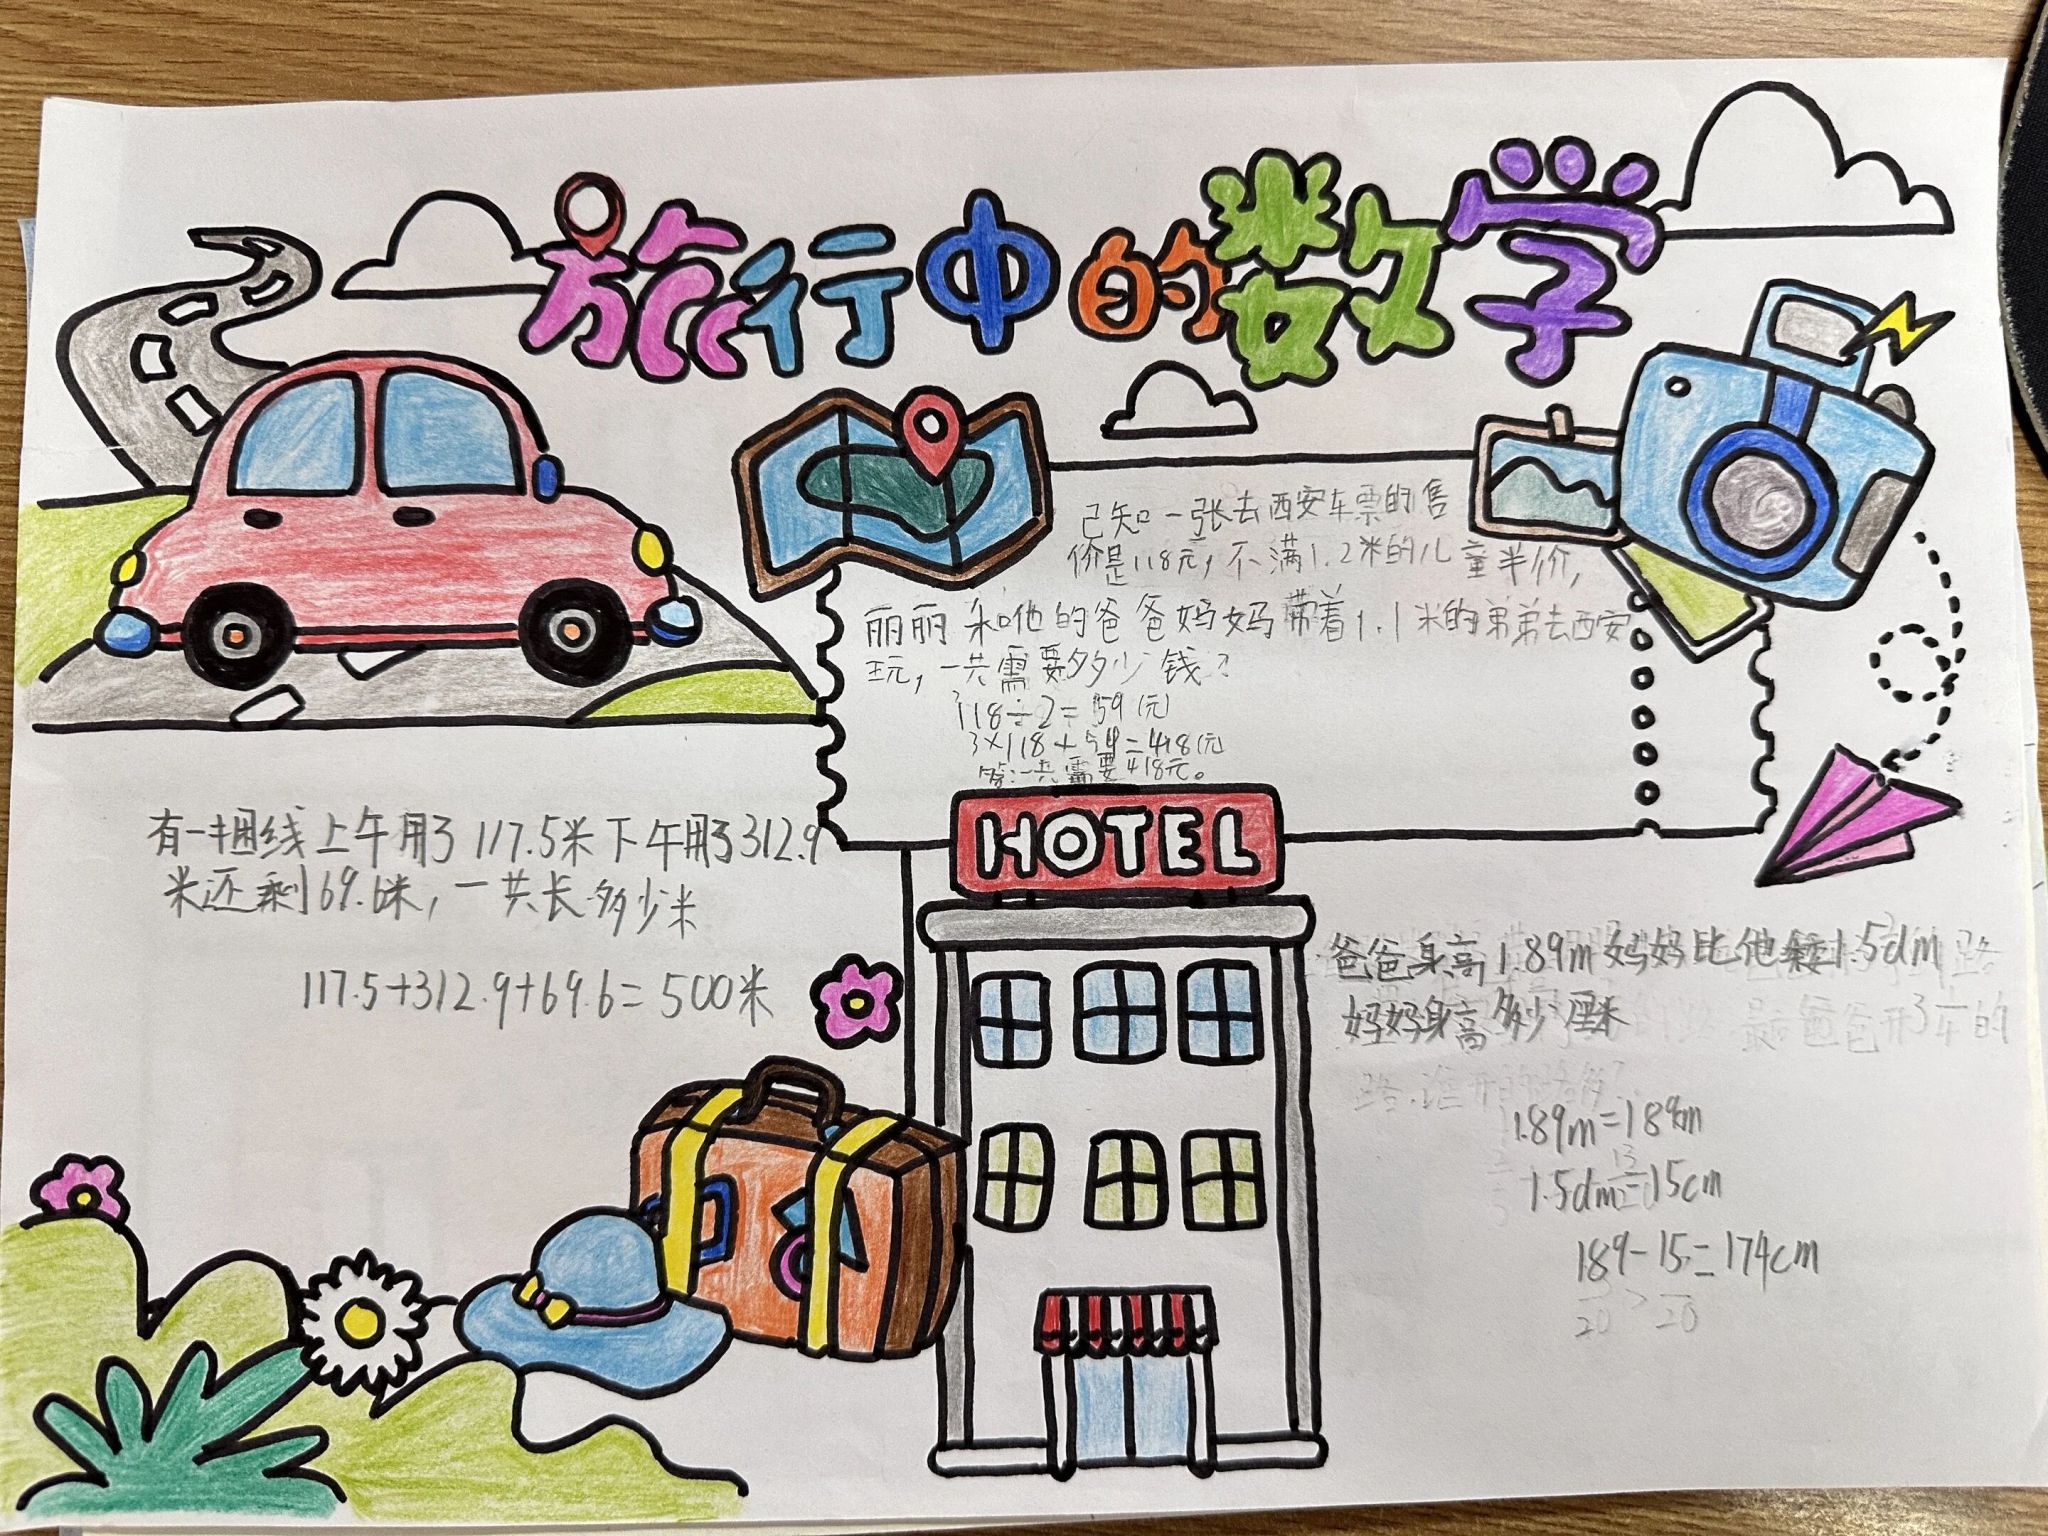 旅行中的数学
已知一张去西安车票的售
价是118元，不满1.2米的儿童半价，
丽丽和他的爸爸妈妈带着1.1米的弟弟去西安
玩，一共需要多少钱？
118÷2=59(元)
3×118+54=418(元)
答:一共需要418元。
HOTEL
有一捆线上午用了117.5米下午用了312.9
米还剩69.6米，一共长多少米
117.5+312.9+69.6=500米
爸爸身高1.89m妈妈比他矮1.5dm
妈妈身高多少厘米
1.89m=189m
1.5dm=15cm
189-15=174cm